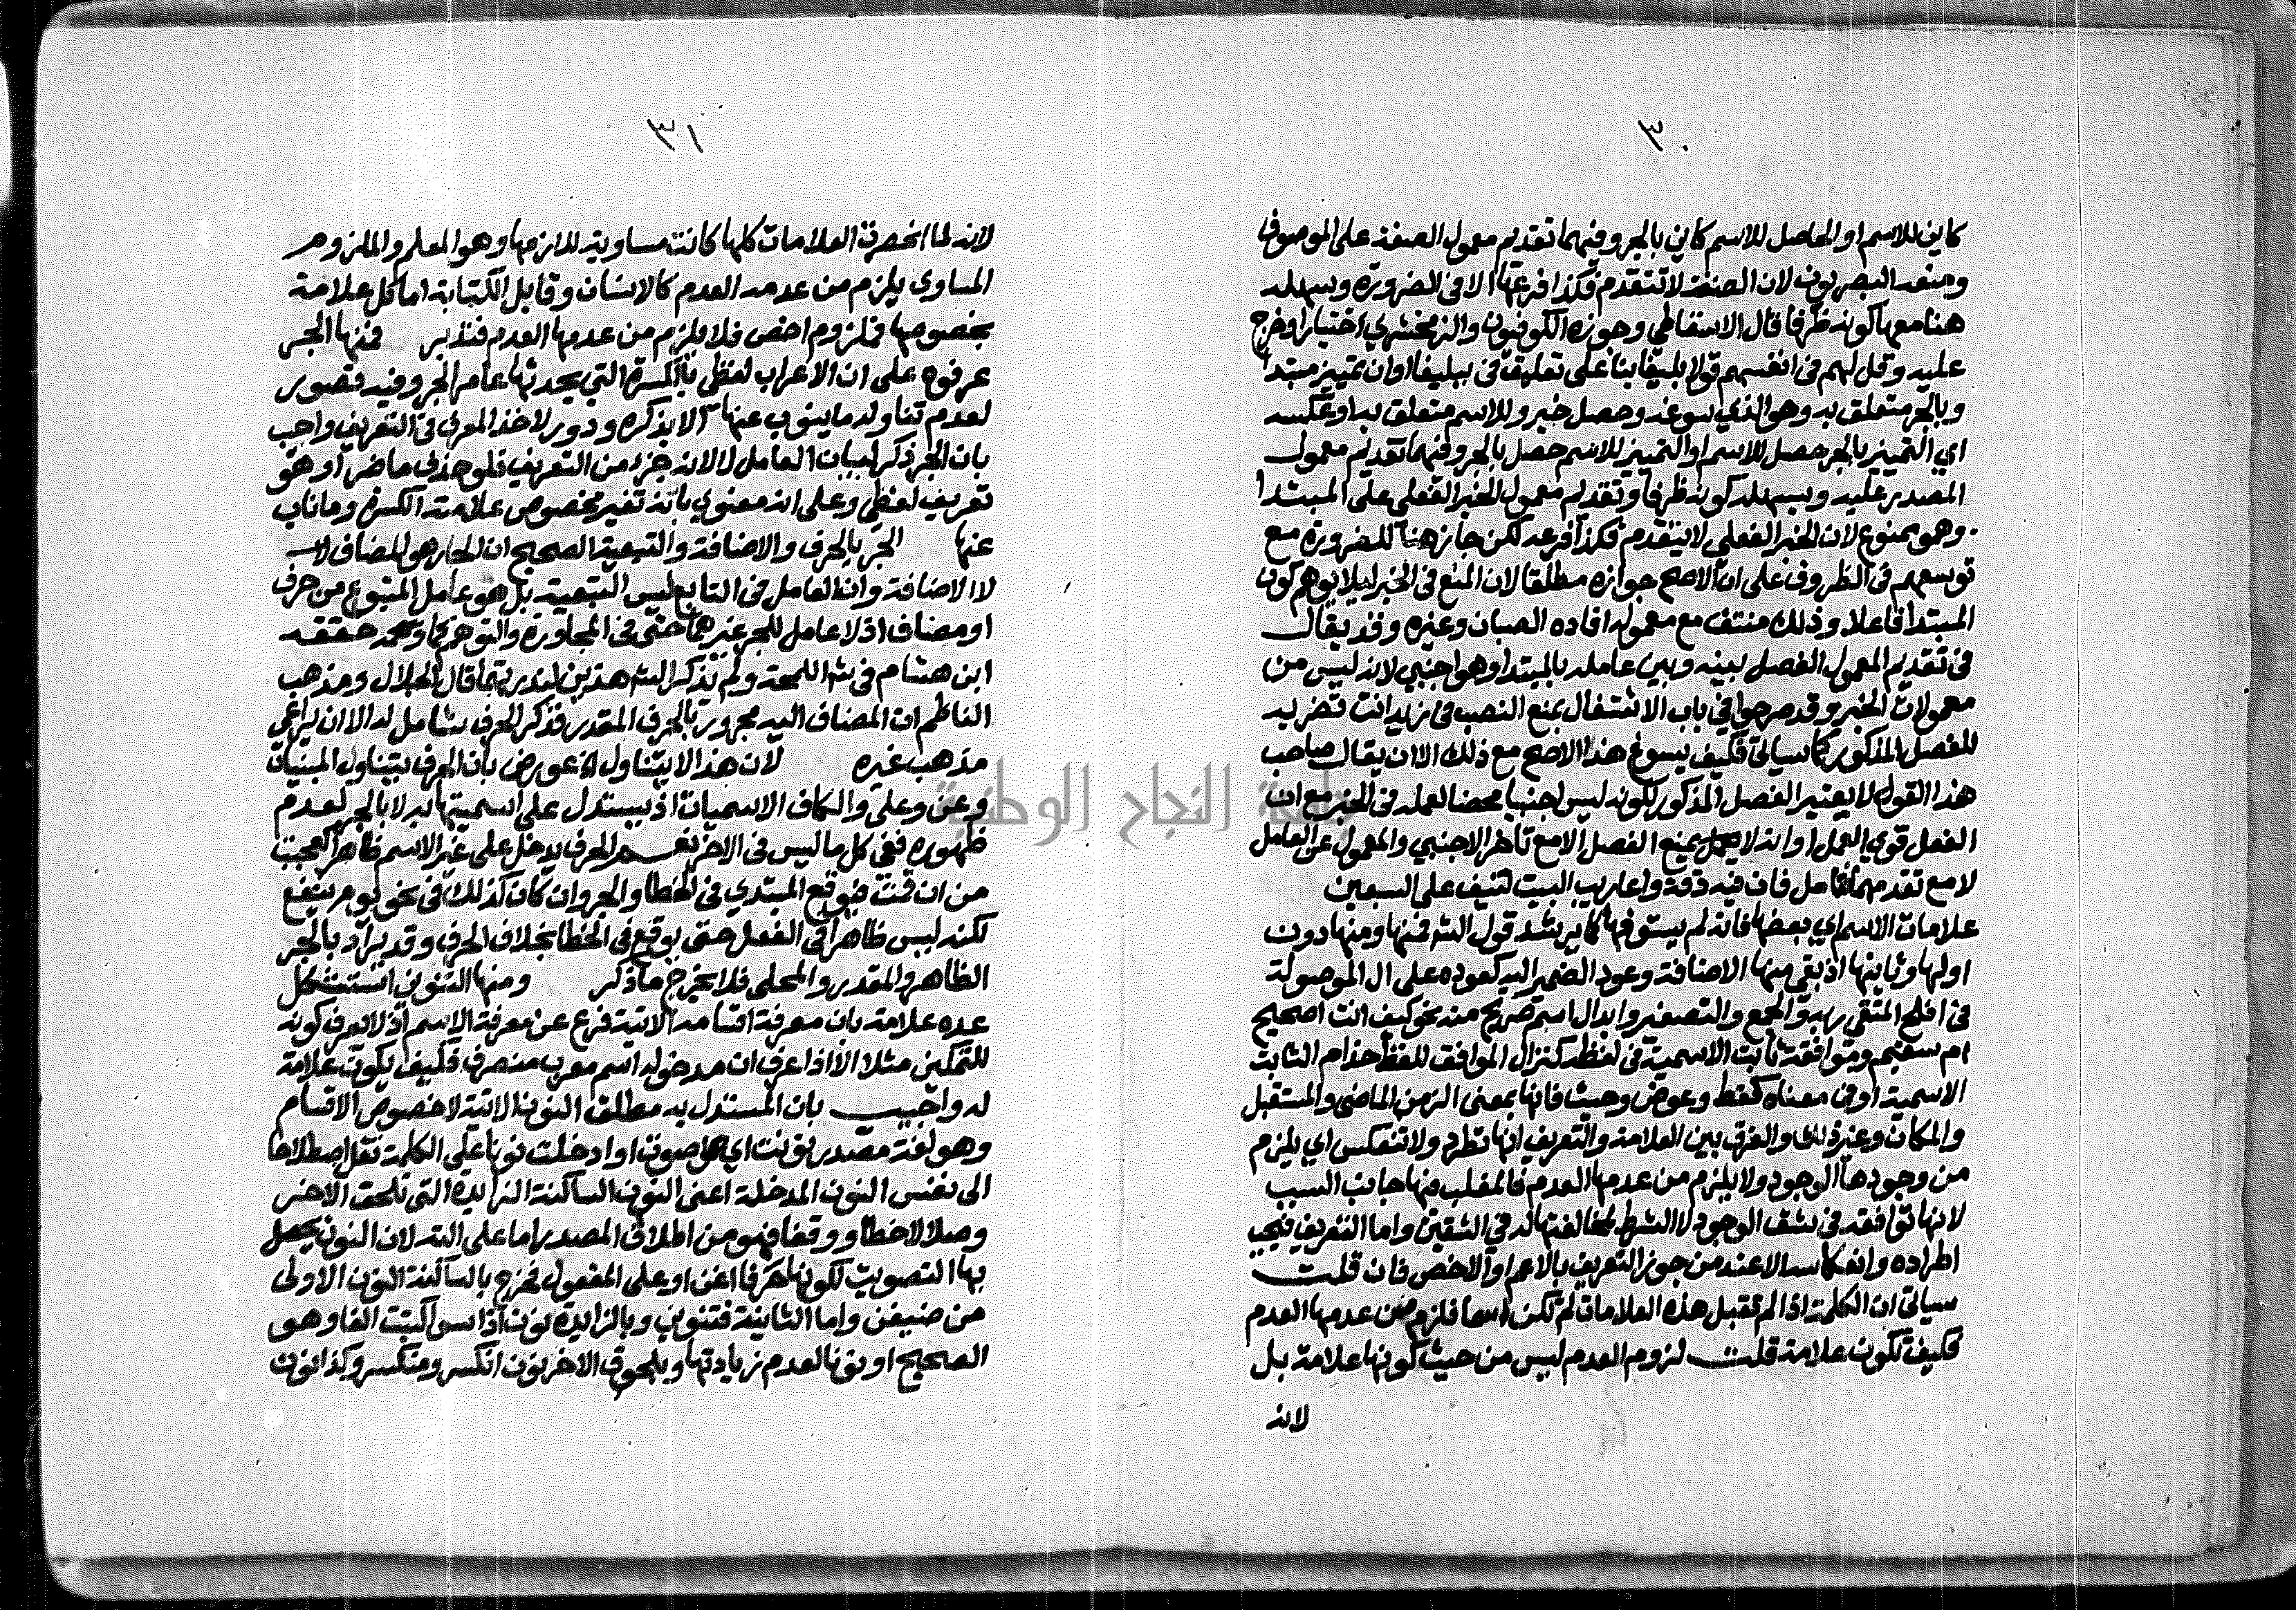 ٣٠
كاين للاسم او الحاصل للاسم كاين بالجر وفيهما تقديم معمول الصفة على الموصوف
ومنعه البصريون لان الصفة لا تتقدم فكذا فرعها الا في الضرورة وسهله
هنا معها كونه ظرفا قال الاسقاطي وجوزه الكوفيون والزمخشري اختيارا وخرج
عليه وقل لهم في انفسهم قولا بليغا بنا على تعليق في ببليغا او ان تمييز مبتدا
وبالجر متعلق به وهو الذي سوغه وحصل خبر وللاسم متعلق به او عكسه
اي التمييز بالجر حصل للاسم او التمييز للاسم حصل بالجر وفيهما تقديم معمول
المصدر عليه وسهله كونه ظرفا وتقديم معمول الخبر الفعلي على المبتدا
وهو ممنوع لان الخبر الفعلي لا يتقدم فكذا فرعه لكن جاز هنا للضرورة مع
توسعهم في الظروف على ان الاصح جوازه مطلقا لان المنع في الخبر ليلا يوهم كون
المبتدا فاعلا وذلك منتف مع معموله افاده الصبان وغيره وقد يقال
في تقديم المعمول الفصل بينه وبين عامله بالمبتدا وهو اجنبي لانه ليس من
معمولات الخبر وقد صرحوا في باب الاشتغال بمنع النصب في زيد انت تضربه
للفصل المذكور كما سياتي فكيف يسوغ هذا الاصح مع ذلك الا ان يقال صاحب
هذا القول لا يعتبر الفصل المذكور لكونه ليس اجنبيا محضا لعمله في الخبر مع ان
الفعل قوي العمل او انه لا يمنع الفصل الا مع تاخر الاجنبي والمعمول عن العامل
لا مع تقدمهما فتامل فان فيه دقة واعاريب البيت تنيف على السبعين
علامات الاسم اي بعضها فانه لم يستوفها كما يرشد قول الشه فمنها ومنها دون
اولها وثانيها اذ بقي منها الاضافة وعود الضمير اليه كعوده على ال الموصولة
في افلح المتقي ربه والجمع والتصغير وابدال اسم صريح منه نحو كيف انت اصحيح
ام سقيم وموافقة ثابت الاسمية في لفظه كنزال الموافق للفظ حذام الثابت
الاسمية او في معناه كقط وعوض وحيث فانها بمعنى الزمن الماضي والمستقبل
والمكان وغير ذلك والفرق بين العلامة والتعريف انها تطرد ولا تنعكس اي يلزم
من وجودها الوجود ولا يلزم من عدمها العدم فالمغلب فيها جانب السبب
لانها توافقه في شق الوجود لا الشرط لمخالفتها له في الشقين واما التعريف فيجب
اطراده وانعكاسه الا عند من جوز التعريف بالاعم او الاخص فان قلت
سياتي ان الكلمة اذا لم تقبل هذه العلامات لم تكن اسما فلزم من عدمها العدم
فكيف تكون علامة قلت لزوم العدم ليس من حيث كونها علامة بل
لانه
٣١
لانه لما انحصرت العلامات كلها كانت مساوية للازمها وهو المعلم والملزوم
المساوي يلزم من عدمه العدم كالانسان وقابل الكتابة اما كل علامة
بخصوصها فملزوم اخص فلا يلزم من عدمها العدم فتدبر فمنها الجر
عرفوه على ان الاعراب لفظي بالكسرة التي يحدثها عامل الجر وفيه قصور
لعدم تناوله ما ينوب عنها الا بذكره ودور لاخذ المعرف في التعريف واجيب
بان الجر ذكر لبيان العامل لا لانه جزء من التعريف فلو حذف ما ضر او هو
تعريف لفظي وعلى انه معنوي بانه تغير مخصوص علامته الكسرة وما ناب
عنها الجر بالحرف والاضافة والتبعية الصحيح ان الجار هو المضاف لا
لا الاضافة وان العامل في التابع ليس التبعية بل هو عامل المتبوع من حرف
او مضاف اذ لا عامل للجر غيرهما حتى في المجاورة والتوهم كما حققه
ابن هشام في شه اللمحة ولم يذكر الشه هذين لندرتهما قال الجلال ومذهب
الناظم ان المضاف اليه مجرور بالحرف المقدر فذكر الحرف شامل له الا ان يراعي
مذهب غيره لان هذا لا يتناول الخ عورض بان الحرف يتناول المبنيات
وعن وعلى والكاف الاسميات اذ يستدل على اسميتها به لا بالجر لعدم
ظهوره ففي كل ما ليس في الاخر نعم الحرف يدخل على غير الاسم ظاهرا كعجبت
من ان قمت فيوقع المبتدي في الخطا والجر وان كان كذلك في نحو يوم ينفع
لكنه ليس ظاهرا في الفعل حتى يوقع في الخطا بخلاف الحرف وقد يراد بالجر
الظاهر والمقدر والمحلي فلا يخرج ما ذكر ومنها التنوين استشكل
عده علامة بان معرفة اقسامه الاتية فرع عن معرفة الاسم اذ لا يعرف كونه
للتمكين مثلا الا اذا عرف ان مدخوله اسم معرب منصرف فكيف يكون علامة
له واجيب بان المستدل به مطلق النون الاتية لا خصوص الاقسام
وهو لغة مصدر نونت اي صوت او ادخلت نونا على الكلمة نقل اصطلاحا
الى نفس النون المدخلة اعني النون الساكنة الزايدة التي تلحق الاخر
وصلا لا خطا ووقفا فهو من اطلاق المصدر اما على الته لان النون يحصل
بها التصويت لكونها حرفا اغن او على المفعول فخرج بالساكنة النون الاولى
من ضيفن واما الثانية فتنوين وبالزايدة نون اذا سوا كتبت الفا وهو
الصحيح او نونا لعدم زيادتها ويلحوق الاخر نون انكسر ومنكسر وكذا نون
جامعة النجاح الوطنية